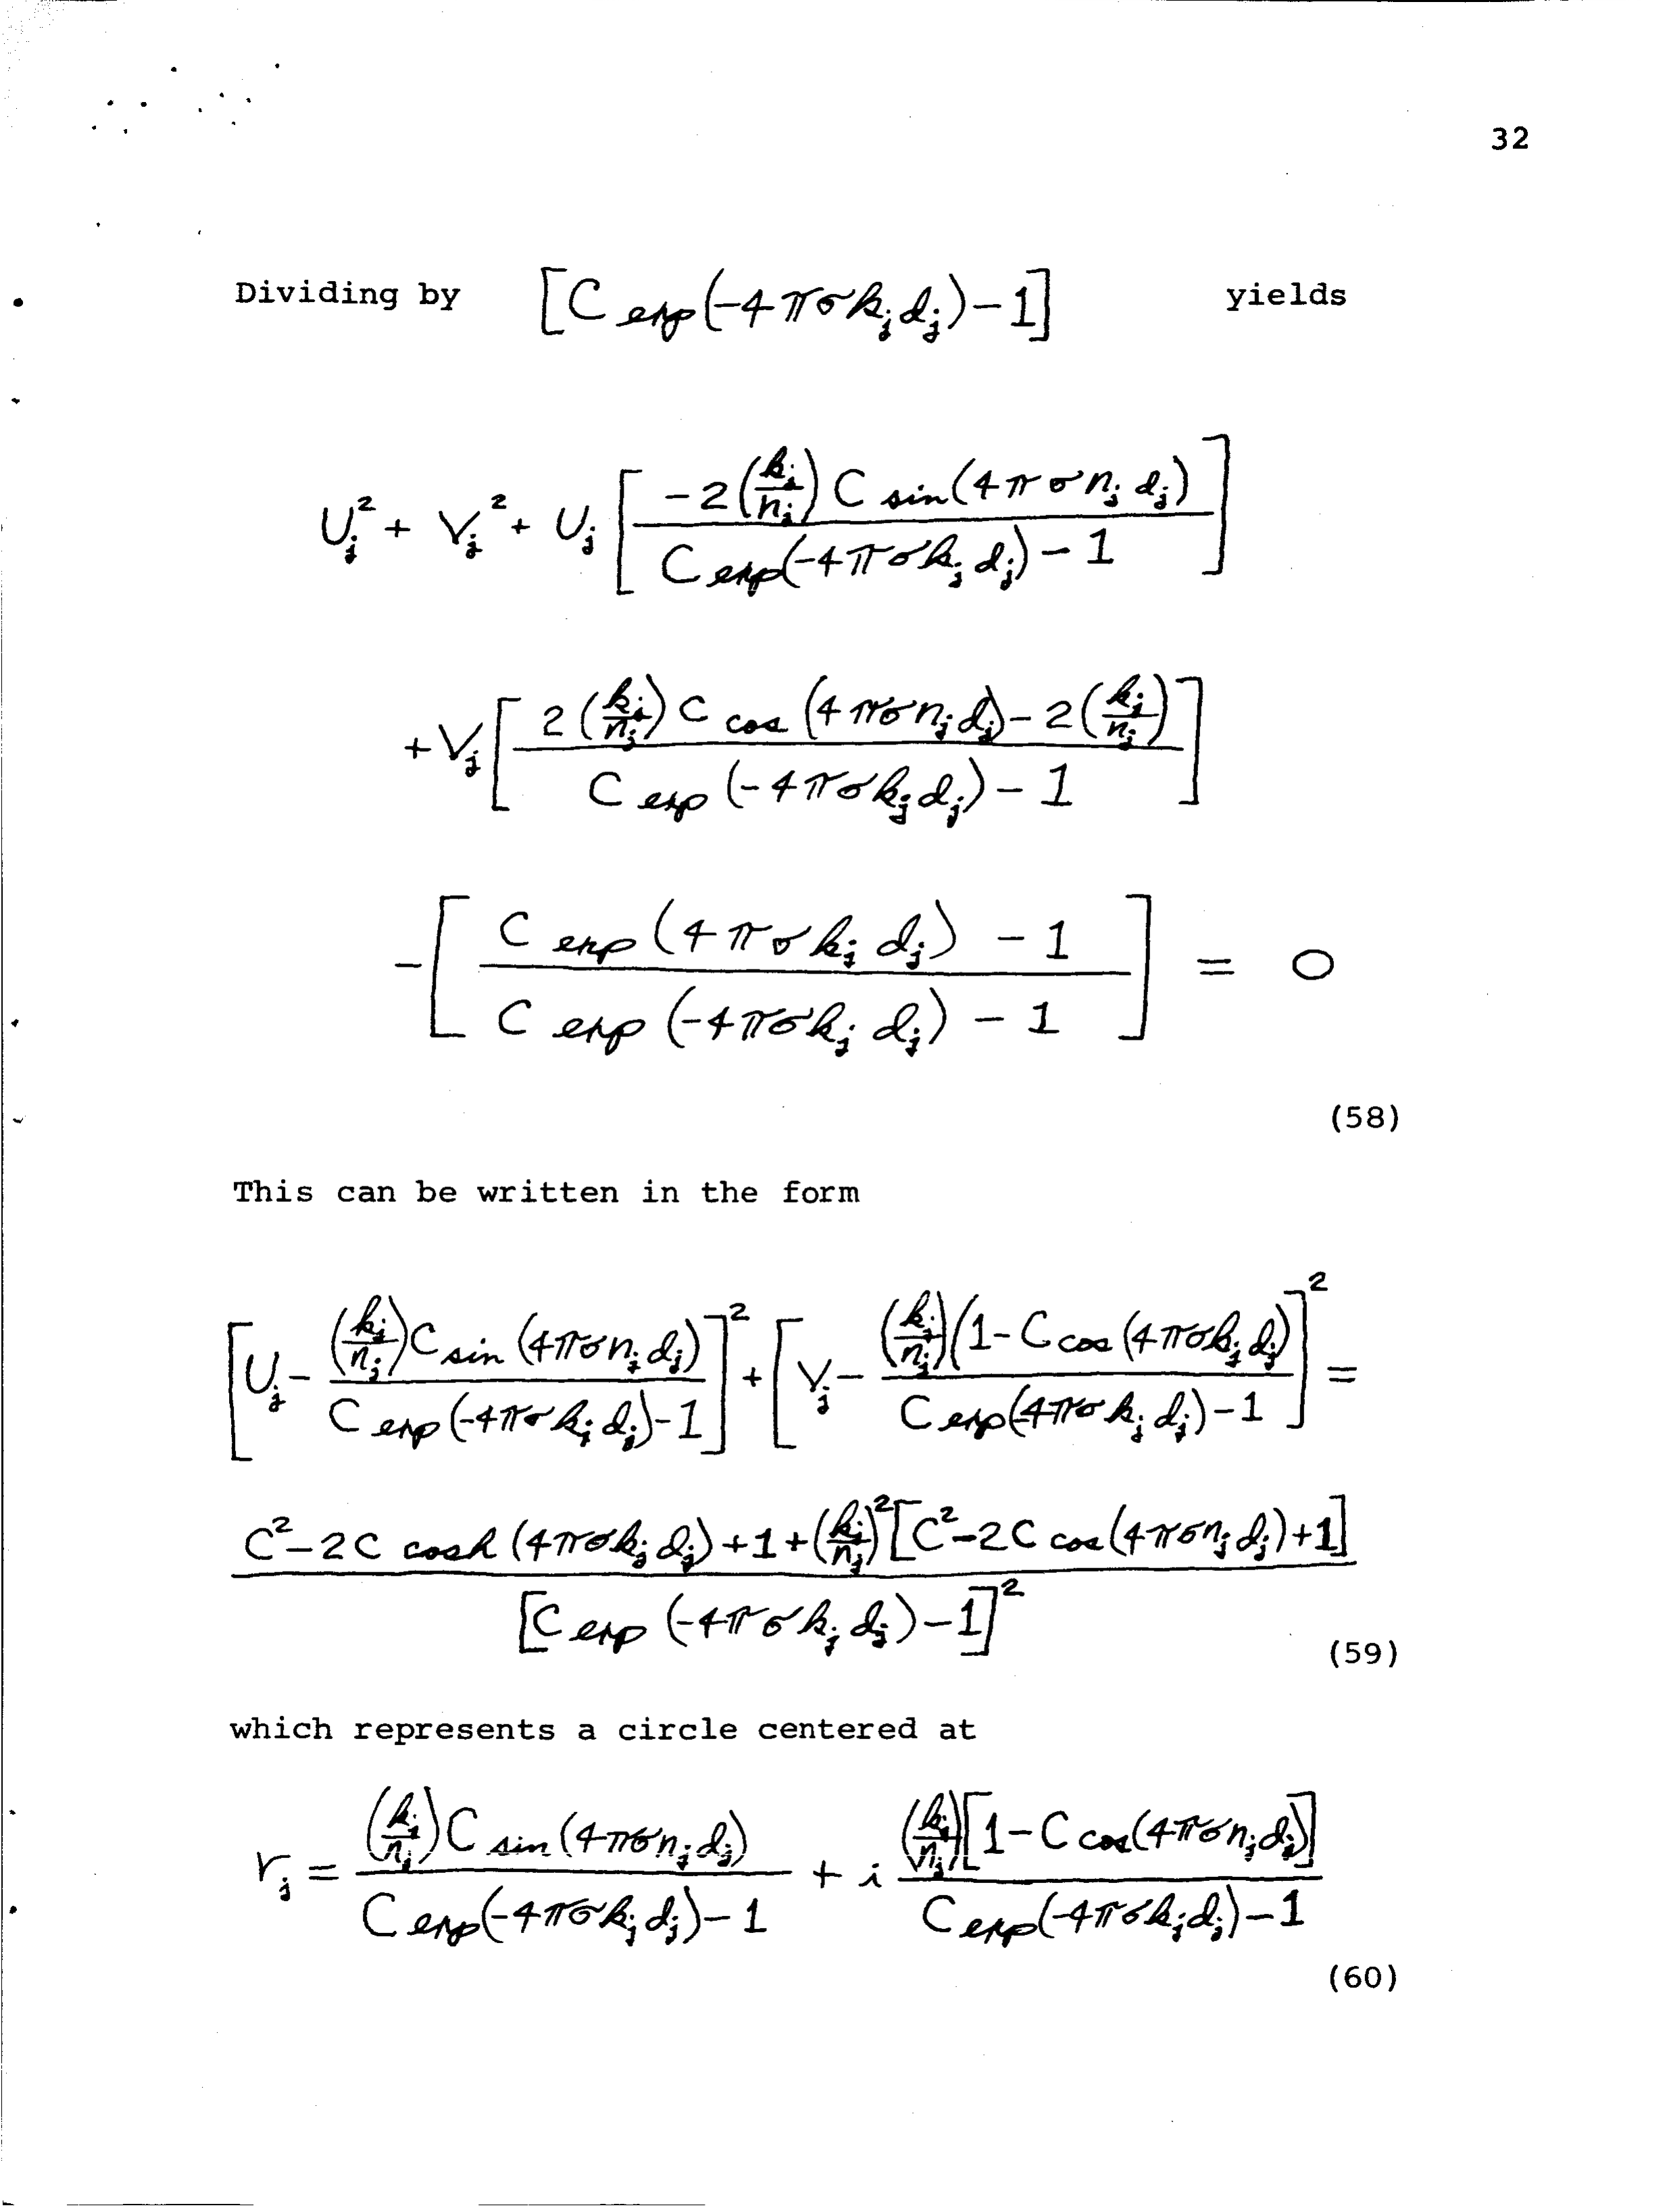 32
Dividing by [C exp(-4πσk_j d_j) - 1] yields
U_j^2 + V_j^2 + U_j [ \frac{-2(\frac{k_j}{n_j}) C sin(4πσn_j d_j)}{C exp(-4πσk_j d_j) - 1} ]
+ V_j [ \frac{2(\frac{k_j}{n_j}) C cos(4πσn_j d_j) - 2(\frac{k_j}{n_j})}{C exp(-4πσk_j d_j) - 1} ]
- [ \frac{C exp(4πσk_j d_j) - 1}{C exp(-4πσk_j d_j) - 1} ] = 0
(58)
This can be written in the form
[ U_j - \frac{(\frac{k_j}{n_j}) C sin(4πσn_j d_j)}{C exp(-4πσk_j d_j) - 1} ]^2 + [ V_j - \frac{(\frac{k_j}{n_j})(1 - C cos(4πσk_j d_j)}{C exp(-4πσk_j d_j) - 1} ]^2 =
\frac{C^2 - 2C cosh(4πσk_j d_j) + 1 + (\frac{k_j}{n_j})^2 [C^2 - 2C cos(4πσn_j d_j) + 1]}{[C exp(-4πσk_j d_j) - 1]^2}
(59)
which represents a circle centered at
r_j = \frac{(\frac{k_j}{n_j}) C sin(4πσn_j d_j)}{C exp(-4πσk_j d_j) - 1} + i \frac{(\frac{k_j}{n_j})[1 - C cos(4πσn_j d_j)]}{C exp(-4πσk_j d_j) - 1}
(60)